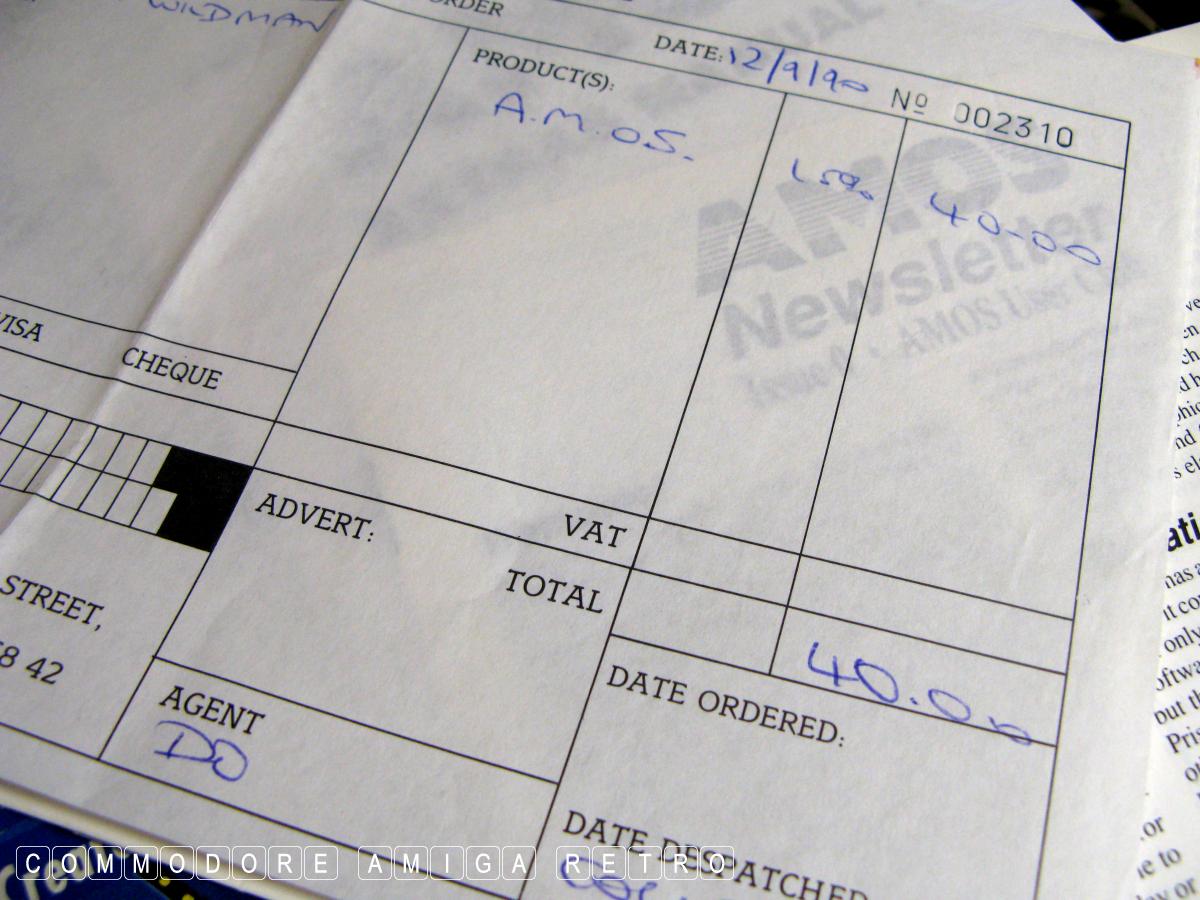 WILDMAN
ORDER
DATE: 12/9/90 Nº 002310
PRODUCT(S):
A.M.OS. 15% 40-00
AMOS
Newsletter
AMOS User
VISA CHEQUE
ADVERT: VAT
TOTAL 40.00
STREET,
8 42
AGENT
DO
DATE ORDERED:
DATE DESPATCHED
COMMODORE AMIGA RETRO